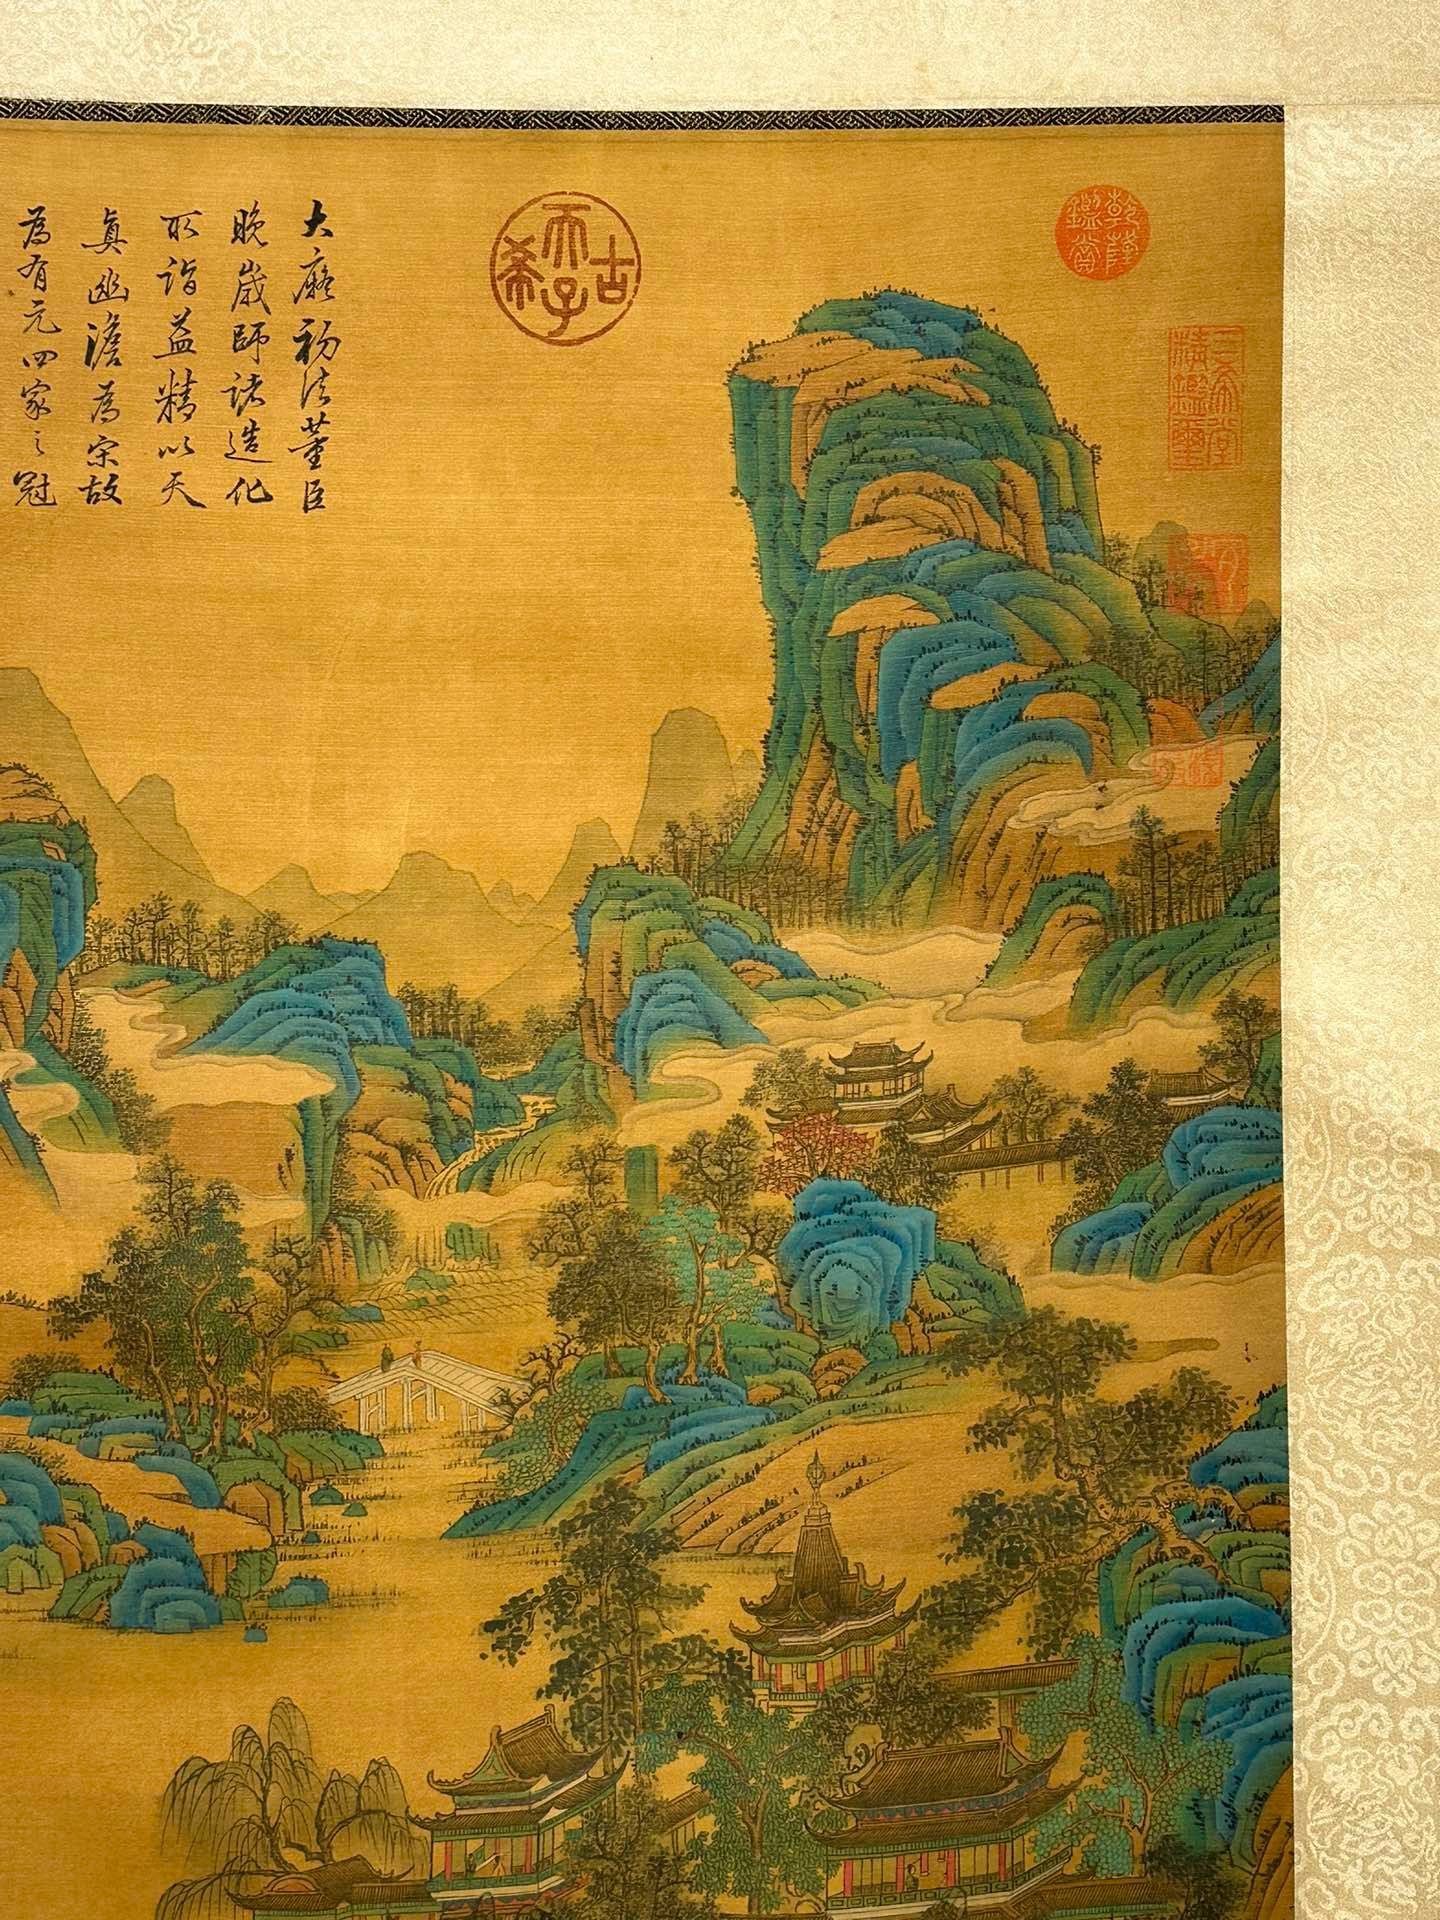 大癡初法董巨
晚歲師諸造化
所詣益精以天
真幽澹為宗故
為有元四家之冠
古希天子
乾隆鑑賞
三希堂精鑑璽
宜子孫